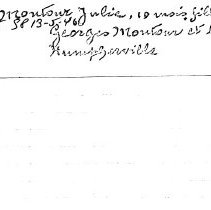 Montour Julie, 10 mois fill
S8 13-5-46
Georges Montour et
Humpherville